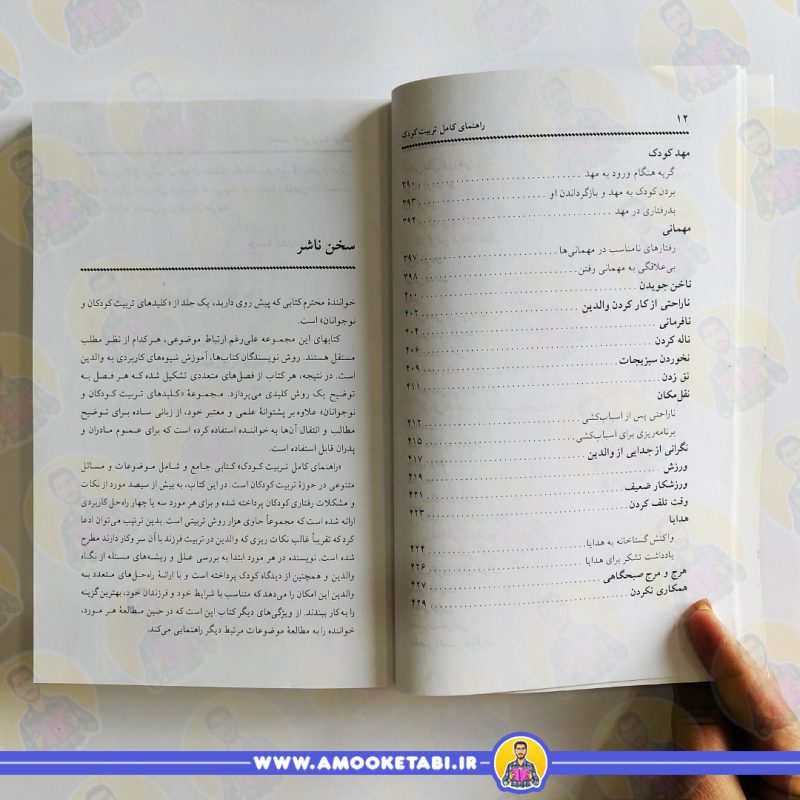 ۱۲
راهنمای کامل تربیت کودک
مهد کودک
گریه هنگام ورود به مهد ۳۹۰
بردن کودک به مهد و بازگرداندن او ۳۹۳
بدرفتاری در مهد ۳۹۴
مهمانی
رفتارهای نامناسب در مهمانی‌ها ۳۹۷
بی‌علاقگی به مهمانی رفتن ۳۹۸
ناخن جویدن ۴۰۰
ناراحتی از کار کردن والدین ۴۰۲
نافرمانی ۴۰۴
ناله کردن ۴۰۶
نخوردن سبزیجات ۴۰۹
نق زدن ۴۱۱
نقل‌مکان
ناراحتی پس از اسباب‌کشی ۴۱۲
برنامه‌ریزی برای اسباب‌کشی ۴۱۵
نگرانی از جدایی از والدین ۴۱۷
ورزش ۴۱۹
ورزشکار ضعیف ۴۲۱
وقت تلف کردن ۴۲۳
هدایا
واکنش گستاخانه به هدایا ۴۲۴
یادداشت تشکر برای هدایا ۴۲۶
هرج و مرج صبحگاهی ۴۲۷
همکاری نکردن ۴۲۹
سخن ناشر
خوانندهٔ محترم کتابی که پیش روی دارید، یک جلد از «کلیدهای تربیت کودکان و
نوجوانان» است.
کتابهای این مجموعه علی‌رغم ارتباط موضوعی، هرکدام از نظر مطلب
مستقل هستند. روش نویسندگان کتاب‌ها، آموزش شیوه‌های کاربردی به والدین
است. در نتیجه، هر کتاب از فصل‌های متعددی تشکیل شده که هر فصل به
توضیح یک روش کلیدی می‌پردازد. مجموعهٔ «کلیدهای تربیت کودکان و
نوجوانان» علاوه بر پشتوانهٔ علمی و معتبر خود، از زبانی ساده برای توضیح
مطالب و انتقال آن‌ها به خواننده استفاده کرده است که برای عموم مادران و
پدران قابل استفاده است.
«راهنمای کامل تربیت کودک» کتابی جامع و شامل موضوعات و مسائل
متنوعی در حوزهٔ تربیت کودکان است. در این کتاب، به بیش از سیصد مورد از نکات
و مشکلات رفتاری کودکان پرداخته شده و برای هر مورد سه یا چهار راه‌حل کاربردی
ارائه شده است که مجموعاً حاوی هزار روش تربیتی است. بدین ترتیب می‌توان ادعا
کرد که تقریباً غالب نکات ریزی که والدین در تربیت فرزند با آن سر و کار دارند مطرح
شده است. نویسنده در هر مورد ابتدا به بررسی علل و ریشه‌های مسئله از نگاه
والدین و همچنین از دیدگاه کودک پرداخته است و با ارائهٔ راه‌حل‌های متعدد به
والدین این امکان را می‌دهد که متناسب با شرایط خود و فرزندان خود، بهترین گزینه
را به کار ببندند. از ویژگی‌های دیگر کتاب این است که در حین مطالعهٔ هر مورد،
خواننده را به مطالعهٔ موضوعات مرتبط دیگر راهنمایی می‌کند.
WWW.AMOOKETABI.IR